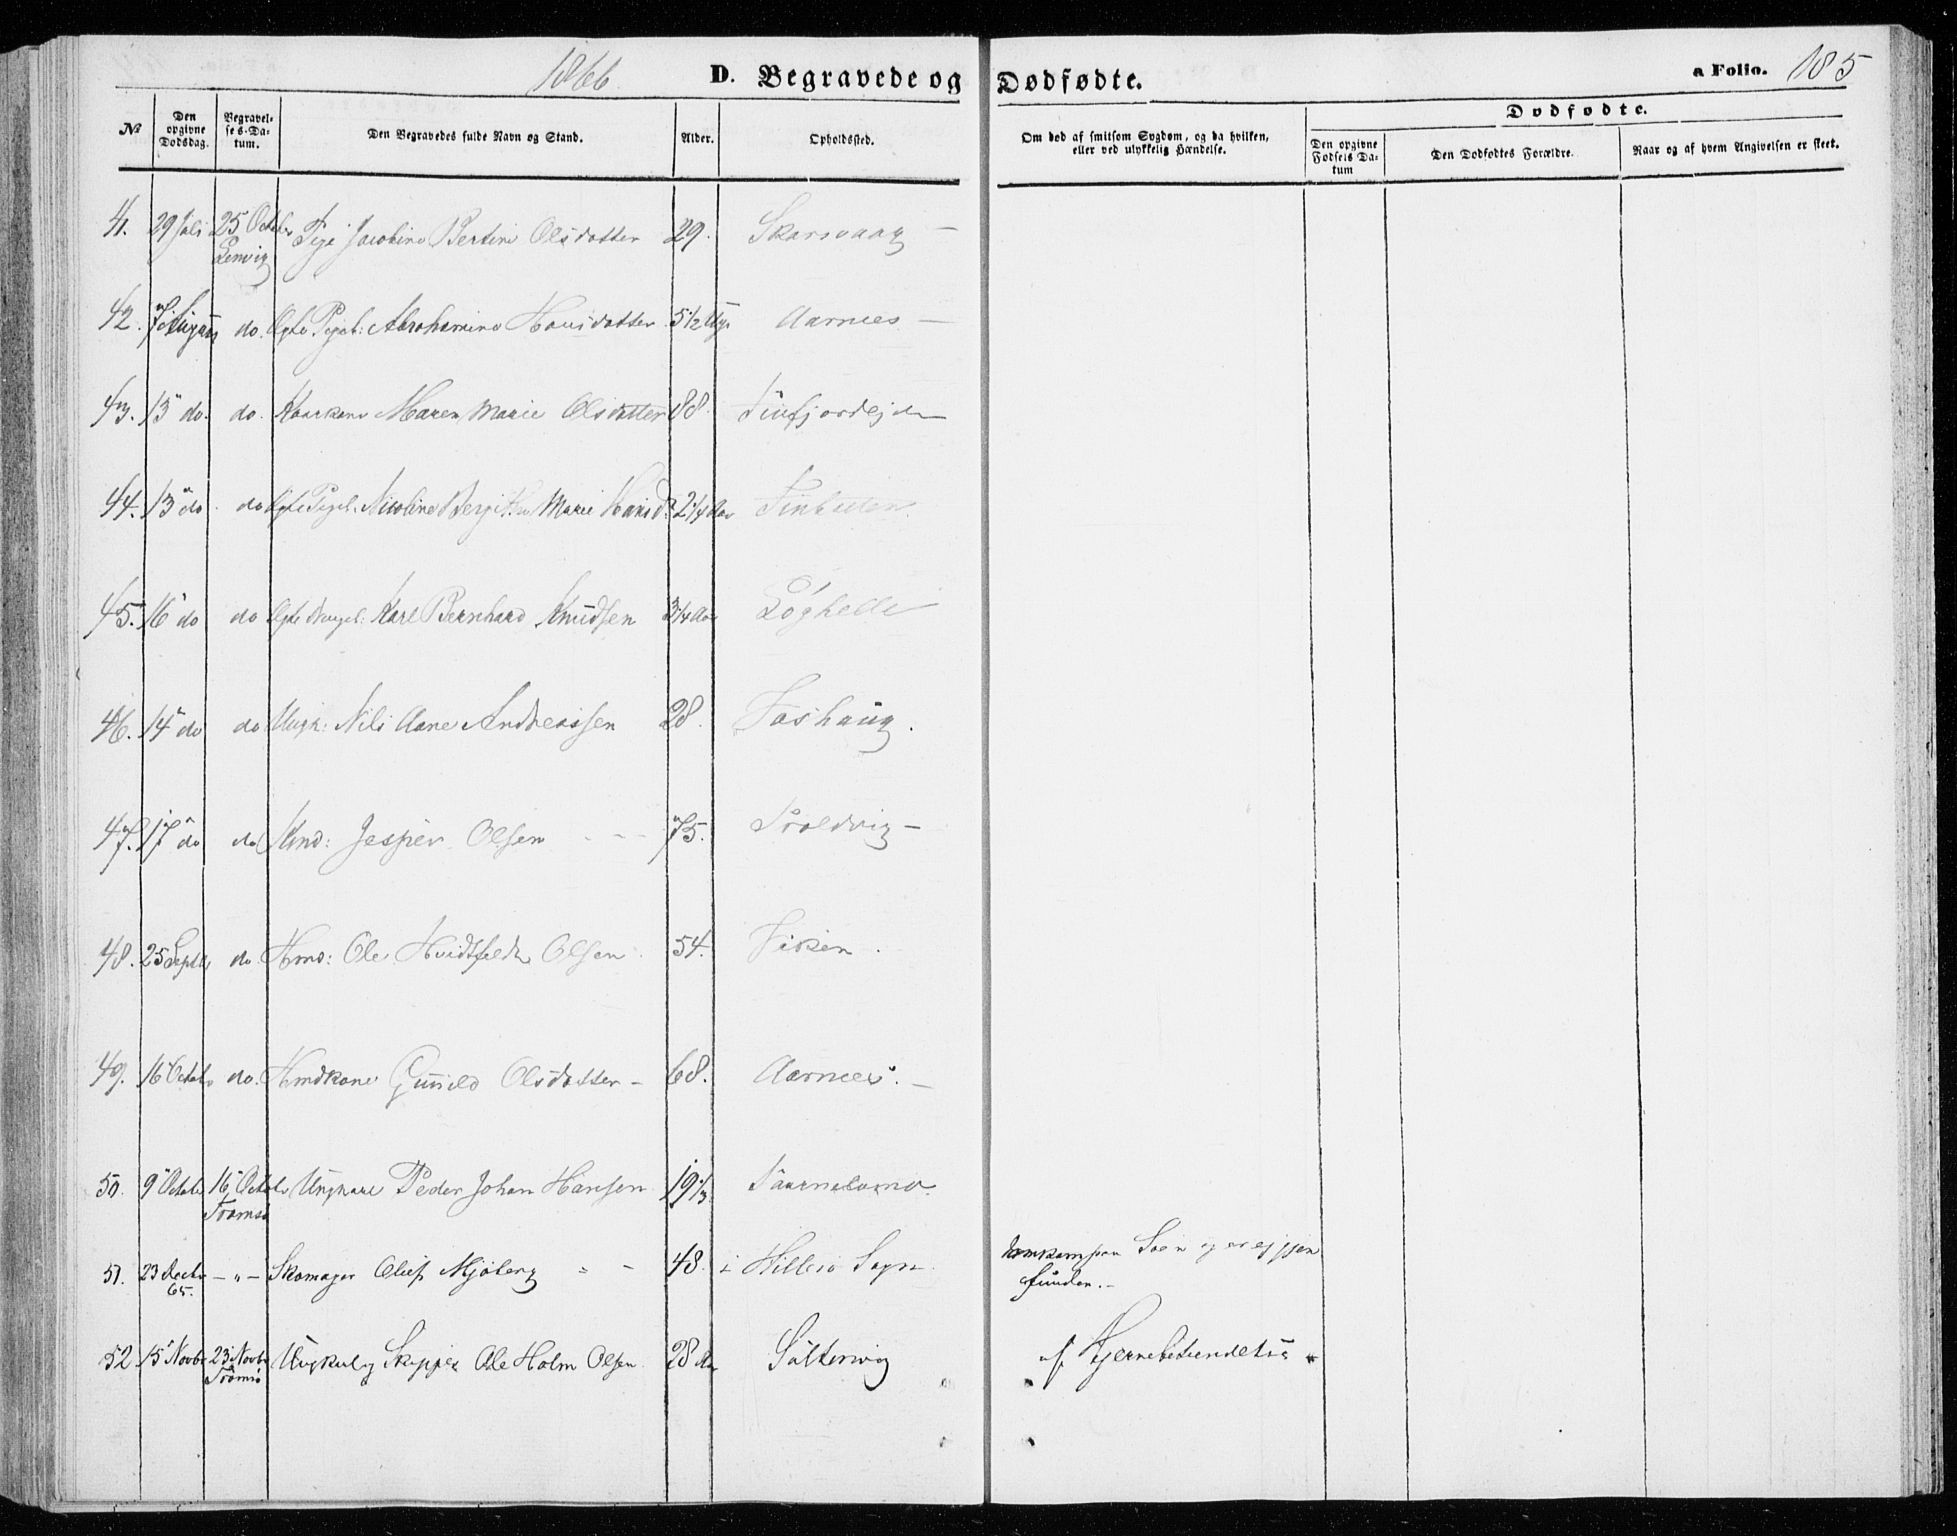 1866 D. Begravede og Dødfødte. a Folio. 185
Dødfødte.
№ Den opgivne Dødsdag. Begravelses-Datum. Den Begravedes fulde Navn og Stand. Alder. Opholdssted. Om død af smitsom Sygdom, og da hvilken, eller ved ulykkelig Hændelse. Den opgivne Fødsels Datum Den Dødfødtes Forældre. Naar og af hvem Angivelsen er skeet.
41. 29 Juli 25 Octobr Pige Jacobine Bertine Olsdatter 29. Skarsvaag –
Lenvig
42. 7 August do. Ægte Pigeb: Abrahamine Hansdatter 5 1/2 Uge Aarnes –
43. 13 do. do. Kaarkone Maren Marie Olsdatter 88. Finfjordejde
44. 13 do. do Ægte Pigeb. Nicoline Bergithe Marie Hansd. 2 1/4 Aar
45. 16 do do Ægte Drengeb: Karl Bernhard Knudsen 3 1/4 Aar Løghelle
46. 14 do do Ungk: Nils Aane Andreassen 28. Foshaug.
47. 17 do do Kmd: Jesper Olsen - - - 75. Troldvig –
48. 25 Septbr do Hmd: Ole Hvidtfeldt Olsen 54.
49. 16 Octobr do. Hmdkone Gunild Olsdatter – 68. Aarnees. –
50. 9 Octobr 16 Octobr Ungkarl Peder Johan Hansen 19 1/3
Tromsø
51. 23 Decbr – " – Skomager Oluf Mjøberg " - 48. i Hillesø Sogn. omkom paa Søen og er ej gjen
65. funden. –
52. 15 Novbr 23 Novbr Ungkarl og Skipper Ole Holm Olsen. 28 Aar Sultenvig af Hjernebetændelse
Tromsø